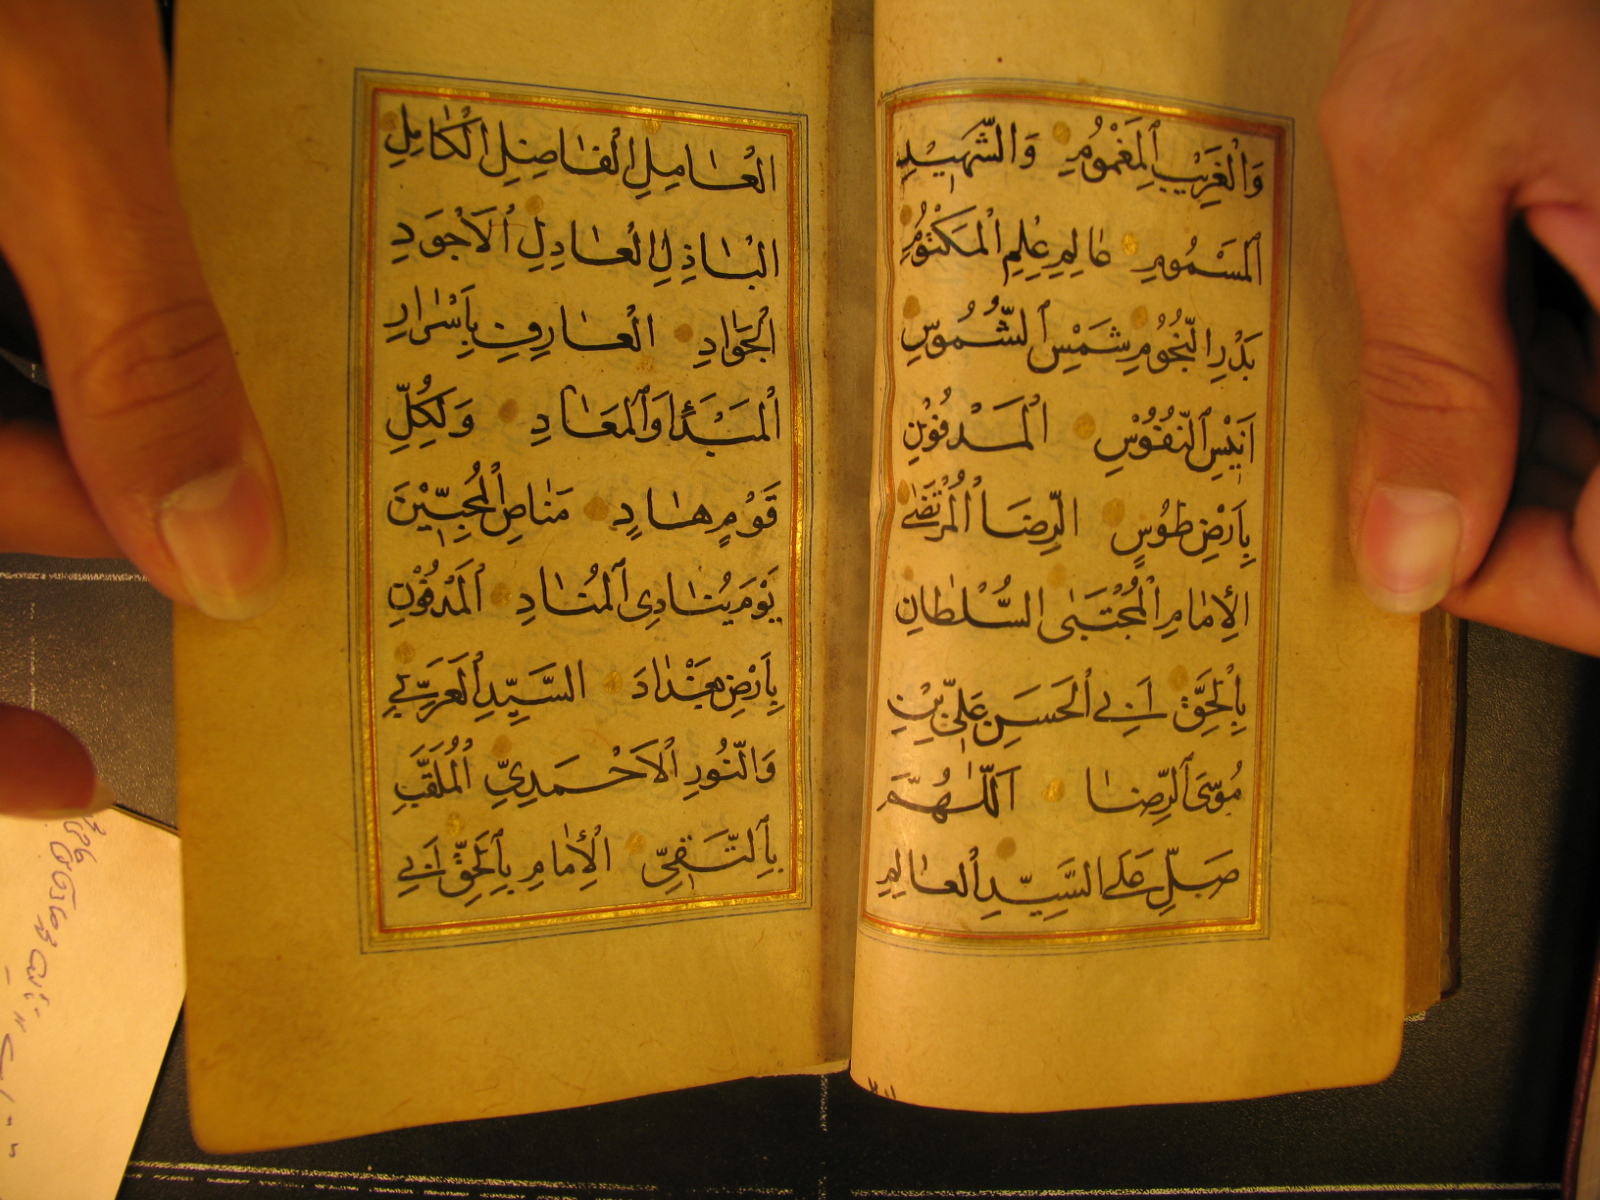 وَالْغَرِيْبِ ٱلْمَغْمُوْمِ وَالشَّهِيْدِ
ٱلْمَسْمُومِ عَالِمِ عِلْمِ الْمَكْتُوْمِ
بَدْرِ النُّجُوْمِ شَمْسِ ٱلشُّمُوسِ
اَنِيْسِ ٱلنُّفُوْسِ الْمَدْفُوْنِ
بِاَرْضِ طُوْسٍ الرِّضَا الْمُرْتَضٰى
الْاِمَامِ الْمُجْتَبٰى السُّلْطَانِ
بِالْحَقِّ اَبِي ٱلْحَسَنِ عَلِيِّ بْنِ
مُوْسَى ٱلرِّضَا اَللّٰهُمَّ
صَلِّ عَلَى السَّيِّدِ ٱلْعَالِمِ
الْعَامِلِ الْفَاضِلِ الْكَامِلِ
الْبَاذِلِ الْعَادِلِ ٱلْاَجْوَدِ
الْجَوَادِ الْعَارِفِ بِاَسْرَارِ
الْمَبْدَأِ وَٱلْمَعَادِ وَلِكُلِّ
قَوْمٍ هَادٍ مَنَاصِ الْمُحِبِّيْنَ
يَوْمَ يُنَادِى ٱلْمُنَادِ ٱلْمَدْفُوْنِ
بِاَرْضِ بَغْدَادَ السَّيِّدِ ٱلْعَرَبِيِّ
وَالنُّورِ الْاَحْمَدِيِّ الْمُلَقَّبِ
بِالتَّقِيِّ الْاِمَامِ بِٱلْحَقِّ اَبِي